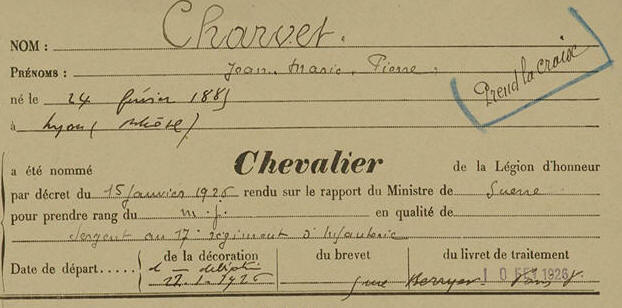 NOM : Charvet.
PRÉNOMS : Jean, Marie, Pierre,
Prend la croix
né le 24 février 1885
à Lyon (Rhône)
a été nommé Chevalier de la Légion d'honneur
par décret du 15 janvier 1926 rendu sur le rapport du Ministre de Guerre
pour prendre rang du m. j. en qualité de
Sergent au 17e régiment d'Infanterie
Date de départ..... de la décoration du brevet du livret de traitement
22.1.1926 rue Berryer 10 FEV 1926